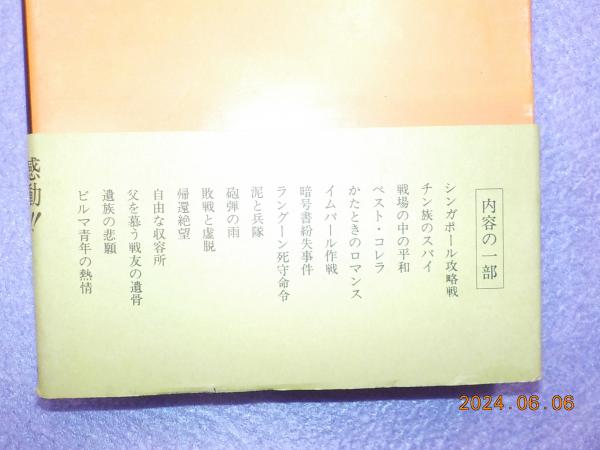 内容の一部
シンガポール攻略戦
チン族のスパイ
戦場の中の平和
ペスト・コレラ
かたときのロマンス
インパール作戦
暗号書紛失事件
ラングーン死守命令
泥と兵隊
砲弾の雨
敗戦と虚脱
帰還絶望
自由な収容所
父を慕う戦友の遺骨
遺族の悲願
ビルマ青年の熱情
感動!!
2024.06.06